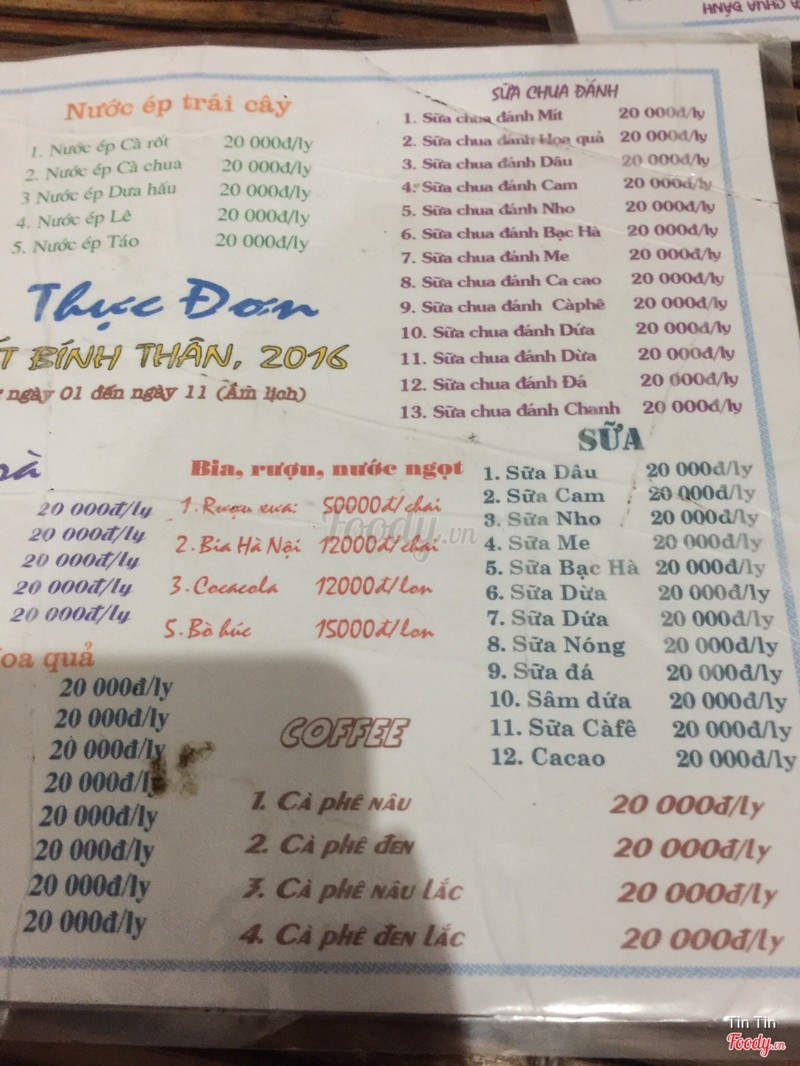 Nước ép trái cây
1. Nước ép Cà rốt 20 000đ/ly
2. Nước ép Cà chua 20 000đ/ly
3 Nước ép Dưa hấu 20 000đ/ly
4. Nước ép Lê 20 000đ/ly
5. Nước ép Táo 20 000đ/ly
SỮA CHUA ĐÁNH
1. Sữa chua đánh Mít 20 000đ/ly
2. Sữa chua đánh Hoa quả 20 000đ/ly
3. Sữa chua đánh Dâu 20 000đ/ly
4. Sữa chua đánh Cam 20 000đ/ly
5. Sữa chua đánh Nho 20 000đ/ly
6. Sữa chua đánh Bạc Hà 20 000đ/ly
7. Sữa chua đánh Me 20 000đ/ly
8. Sữa chua đánh Ca cao 20 000đ/ly
9. Sữa chua đánh Càphê 20 000đ/ly
10. Sữa chua đánh Dứa 20 000đ/ly
11. Sữa chua đánh Dừa 20 000đ/ly
12. Sữa chua đánh Đá 20 000đ/ly
13. Sữa chua đánh Chanh 20 000đ/ly
Thực Đơn
BÍNH THÂN, 2016
ngày 01 đến ngày 11 (Âm lịch)
20 000đ/ly
20 000đ/ly
20 000đ/ly
20 000đ/ly
20 000đ/ly
Bia, rượu, nước ngọt
1. Rượu xưa: 50000đ/chai
2. Bia Hà Nội 12000đ/chai
3. Cocacola 12000đ/lon
5. Bò húc 15000đ/lon
SỮA
1. Sữa Dâu 20 000đ/ly
2. Sữa Cam 20 000đ/ly
3. Sữa Nho 20 000đ/ly
4. Sữa Me 20 000đ/ly
5. Sữa Bạc Hà 20 000đ/ly
6. Sữa Dừa 20 000đ/ly
7. Sữa Dứa 20 000đ/ly
8. Sữa Nóng 20 000đ/ly
9. Sữa đá 20 000đ/ly
10. Sâm dứa 20 000đ/ly
11. Sữa Càfê 20 000đ/ly
12. Cacao 20 000đ/ly
quả
20 000đ/ly
20 000đ/ly
20 000đ/ly
20 000đ/ly
20 000đ/ly
20 000đ/ly
20 000đ/ly
20 000đ/ly
COFFEE
1. Cà phê nâu 20 000đ/ly
2. Cà phê đen 20 000đ/ly
3. Cà phê nâu lắc 20 000đ/ly
4. Cà phê đen lắc 20 000đ/ly
Foody.vn
Tin Tin
Foody.vn